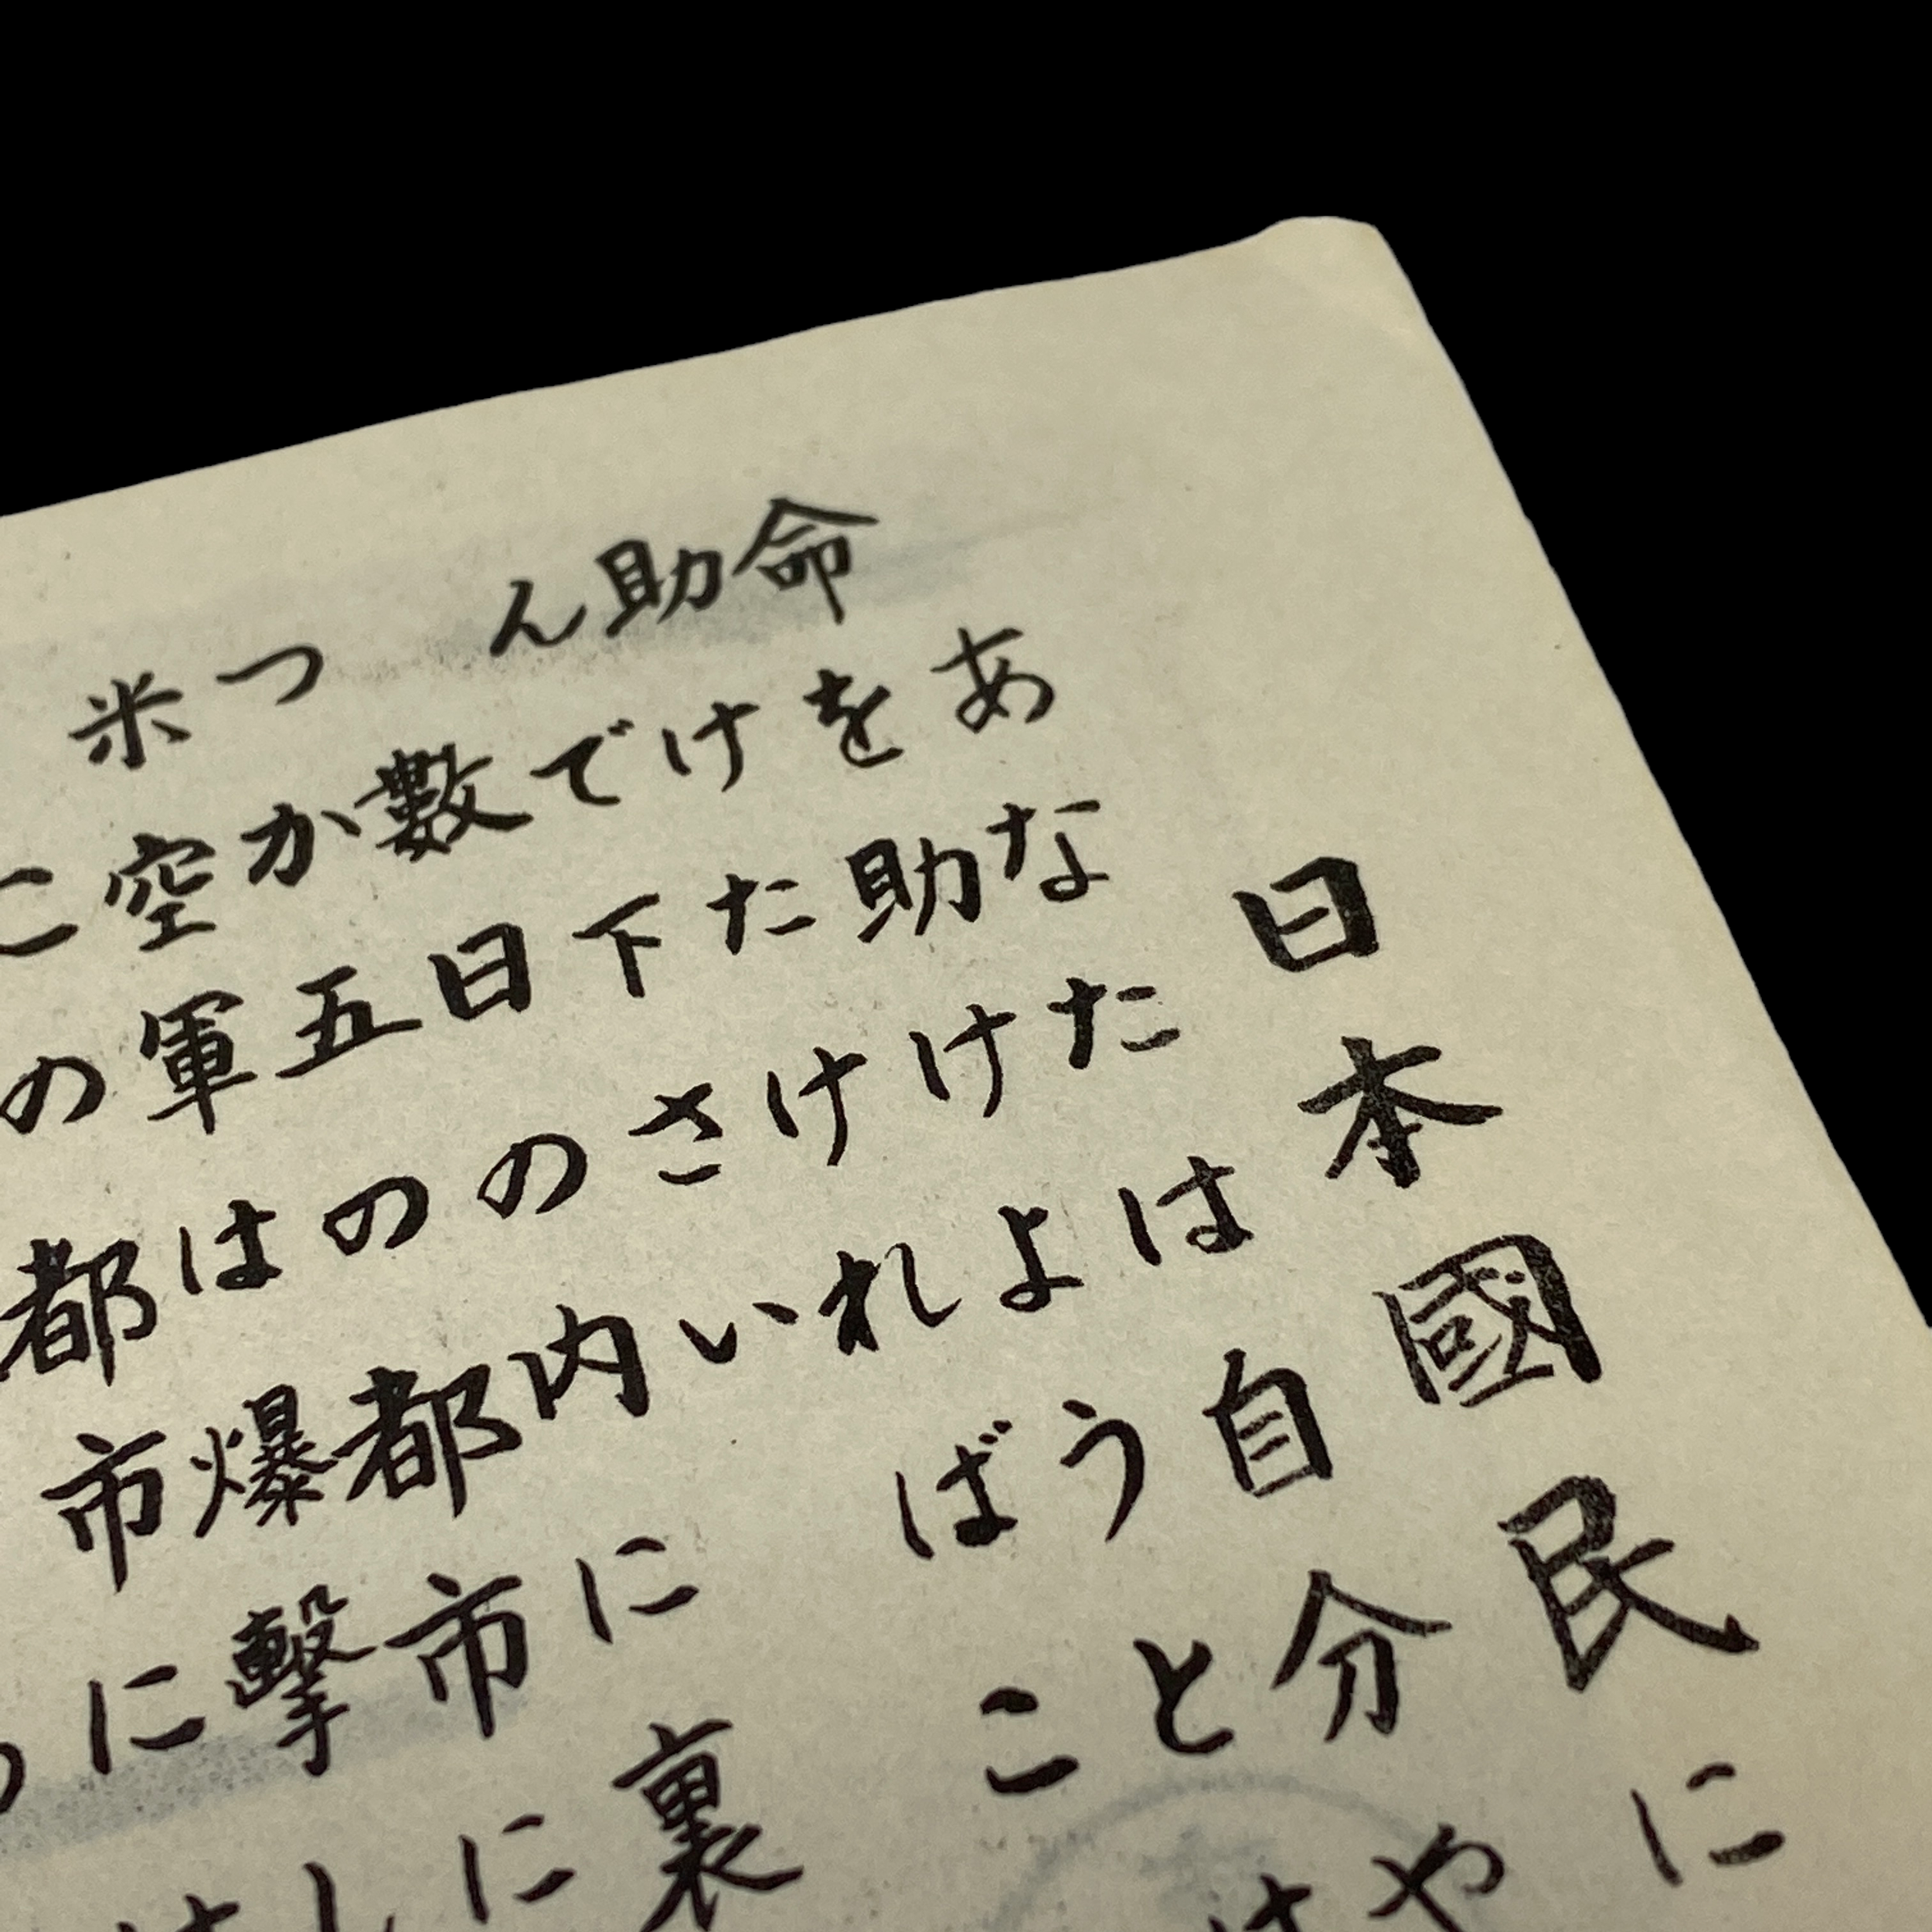 日本國民に
あなたは自分や
命を助けようとは
助けたければこ
んで下さい
數日の内に裏
つか五の都市に
米空軍は爆撃し
この都市には